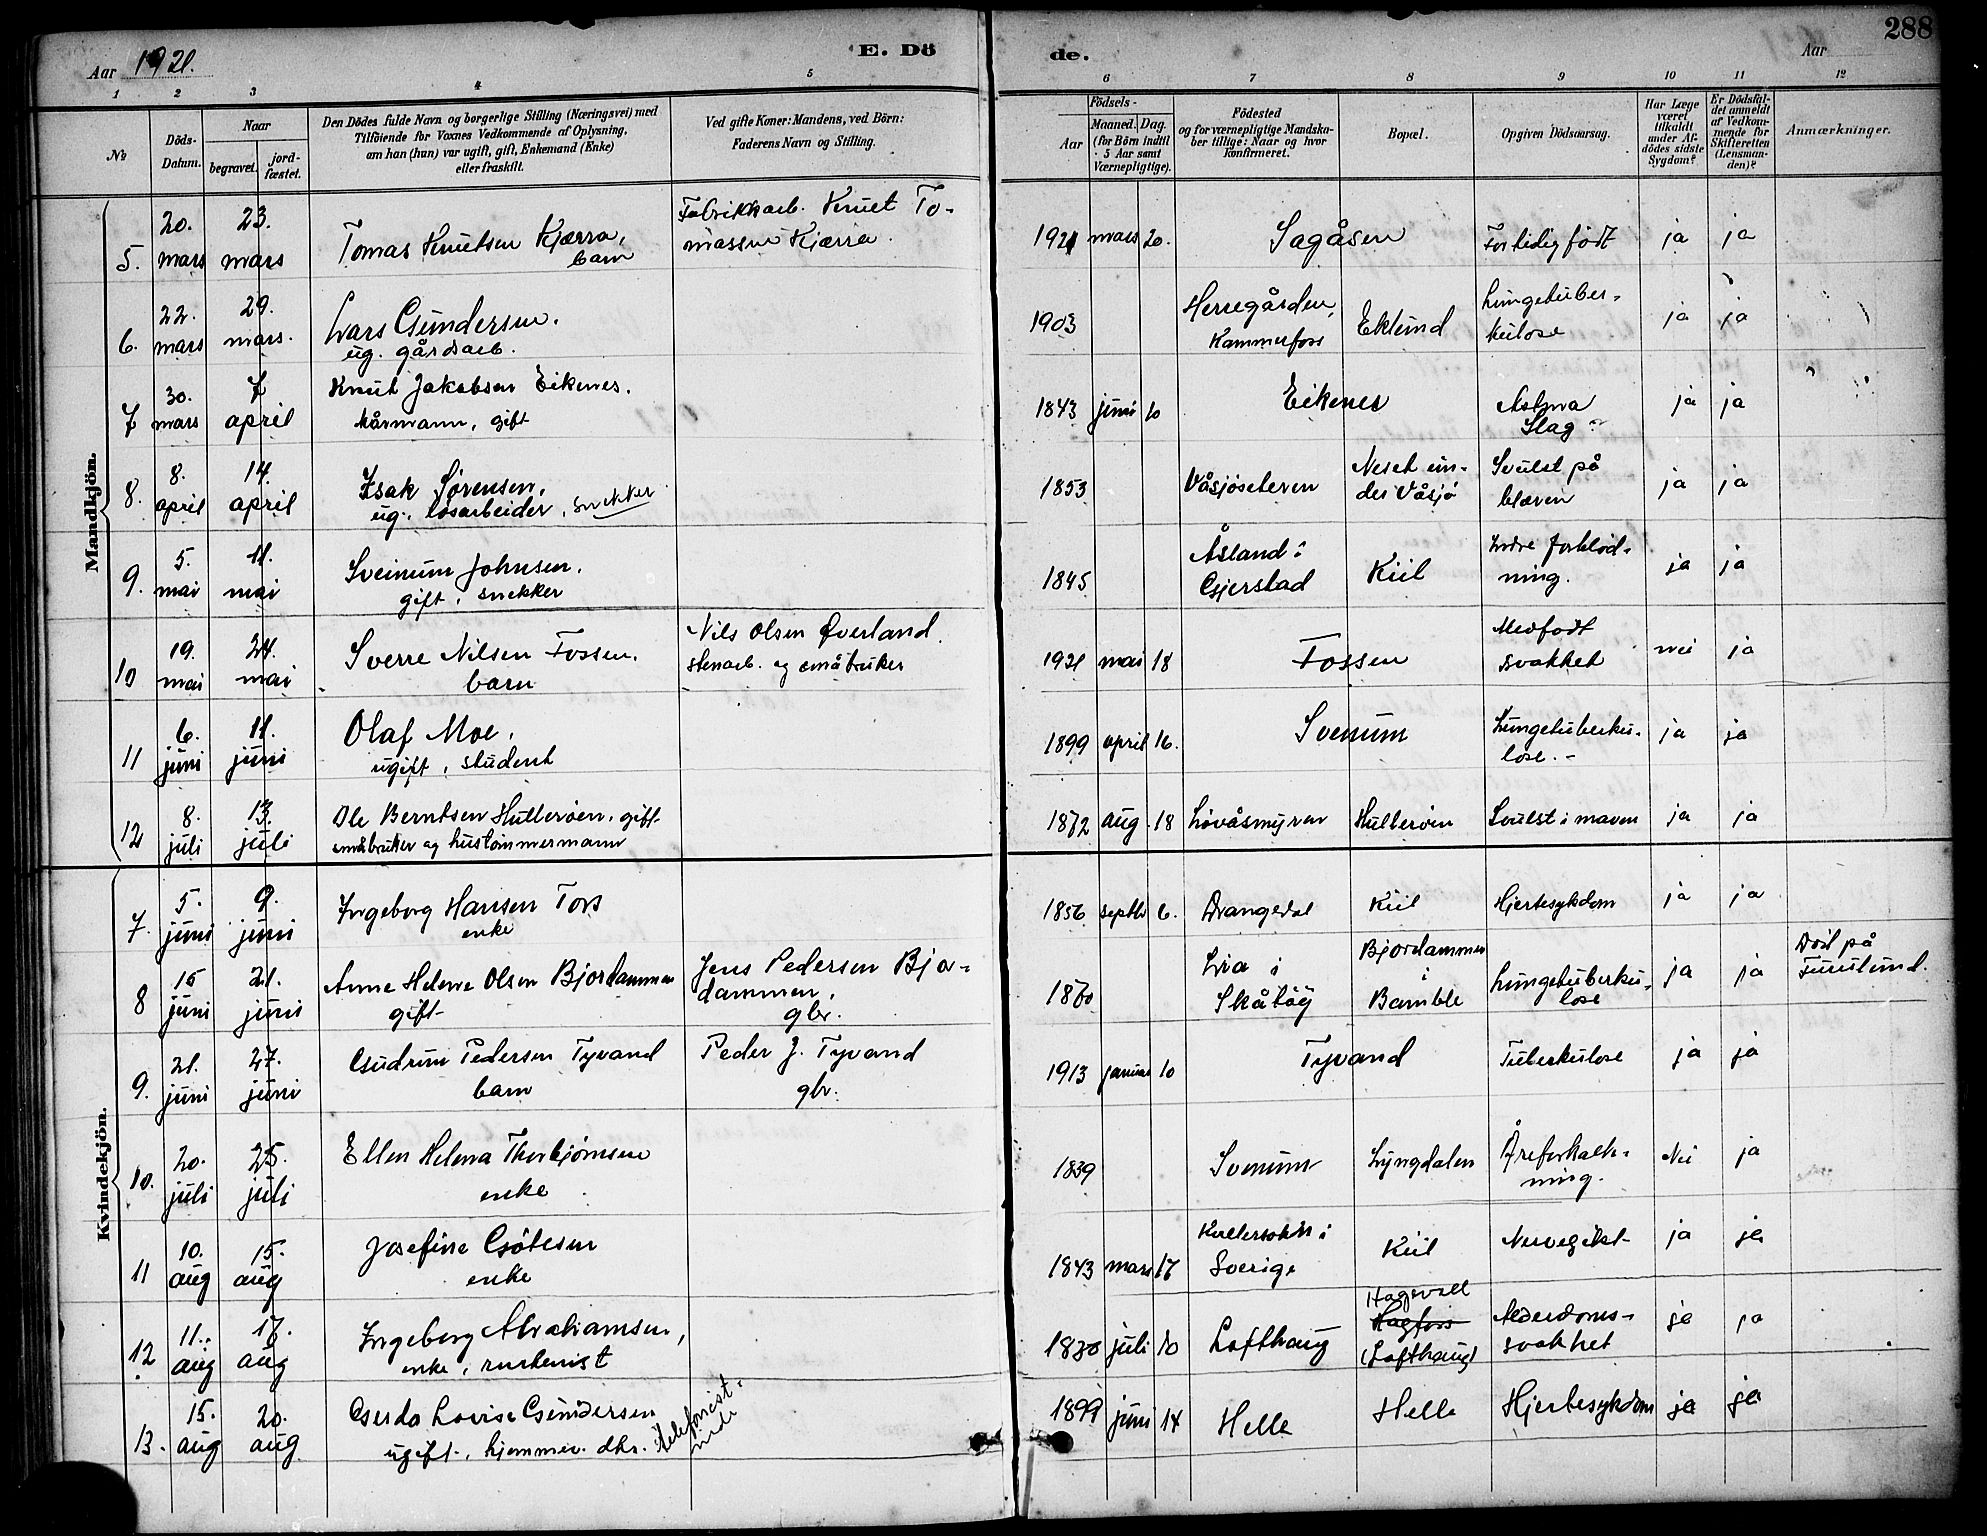 Aar 1921.
E. Dö
de.
Aar
288
1 2 3 4 5 6 7 8 9 10 11 12
№
Döds-Datum.
Naar
begravet.
jord-fæstet.
Den Dödes fulde Navn og borgerlige Stilling (Næringsvei) med
Tilföiende for Voxnes Vedkommende af Oplysning,
om han (hun) var ugift, gift, Enkemand (Enke)
eller fraskilt.
Ved gifte Koner: Mandens, ved Börn:
Faderens Navn og Stilling.
Födsels-
Aar
Maaned. Dag.
(for Börn indtil
5 Aar samt
Værnepligtige).
Födested
og for værnepligtige Mandska-
ber tillige: Naar og hvor
konfirmeret.
Bopæl.
Opgiven Dödsaarsag.
Har Læge
været
tilkaldt
under Af-
dödes sidste
Sygdom?
Er Dödsfal-
det anmeldt
af Vedkom-
mende for
Skifteretten
(Lensman-
den)?
Anmærkninger.
Mandkjön.
5. 20. mars 23. mars Tomas Knutsen Kjærra, barn Fabrikkarb. Knut To-
massen Kjærra. 1921 mars 20. Sagåsen For tidlig født ja ja
6. 22. mars 29. mars. Lars Gundersen. ug. gårdsarb. 1903 Herregården, Kammerfoss Eklund Lungetuber-
kulose ja ja
7 30. mars 7 april Knut Jakobsen Eikenes. kårmann, gift 1843 juni 10 Eikenes Astma
Slag ja ja
8. 8. april 14. april Isak Sørensen, ug. løsarbeider, snekker 1853 Våsjøseteren Neset un-
der Våsjø Svulst på
blæren ja ja
9. 5. mai 11. mai Sveinum Johnsen. gift, snekker 1845 Åsland i
Gjerstad Kiil Indre forblød-
ning. ja ja
10 19. mai 24. mai Sverre Nilsen Fossen. barn Nils Olsen Øverland.
stenarb. og småbruker 1921 mai 18 Fossen Medfødt
svakhet nei ja
11 6. juni 11. juni Olaf Moe, ugift, student 1899 april 16. Svenum Lungetuberku-
lose. - ja ja
12 8. juli 13. juli Ole Berntsen Hulterøen, gift
småbruker og hustømmermann 1872 aug 18 Løvåsmyren Hulterøen Svulst i maven ja ja
Kvindekjön.
7. 5. juni 9. juni Ingeborg Hansen Tors enke 1856 septbr 6. Drangedal Kiil Hjertesykdom ja ja
8 15 juni 21. juni Anne Helene Olsen Bjordammen gift Jens Pedersen Bjor-
dammen, gbr. 1870 Lia i
Skåtøy Bjordammen
i
Bamble Lungetuberku-
lose ja ja Død på
Furulund.
9. 21. juni 27. juni Gudrun Pedersen Tyvand barn Peder J. Tyvand gbr. 1913 januar 10 Tyvand Tuberkulose ja ja
10. 20. juli 25. juli Ellen Helena Thorbjørnsen enke 1839 Svenum Lyngdalen Åreforkalk-
ning. Nei ja
11 10. aug 15. aug Josefine Gøtesen enke 1843 mars 17 i
Sverige Kiil Nervegikt ja ja
12 11. aug 17. aug Ingeborg Abrahamsen, enke, 1830 juli 10 Lofthaug Hagevall
Hagfoss
(Lofthaug) Alderdoms-
svakhet ja ja
13. 15. aug 20. aug Gerda Lovise Gundersen
ugift, hjemmev. dtr. telefonist. 1899 juni 14 Helle Helle Hjertesykdom ja ja